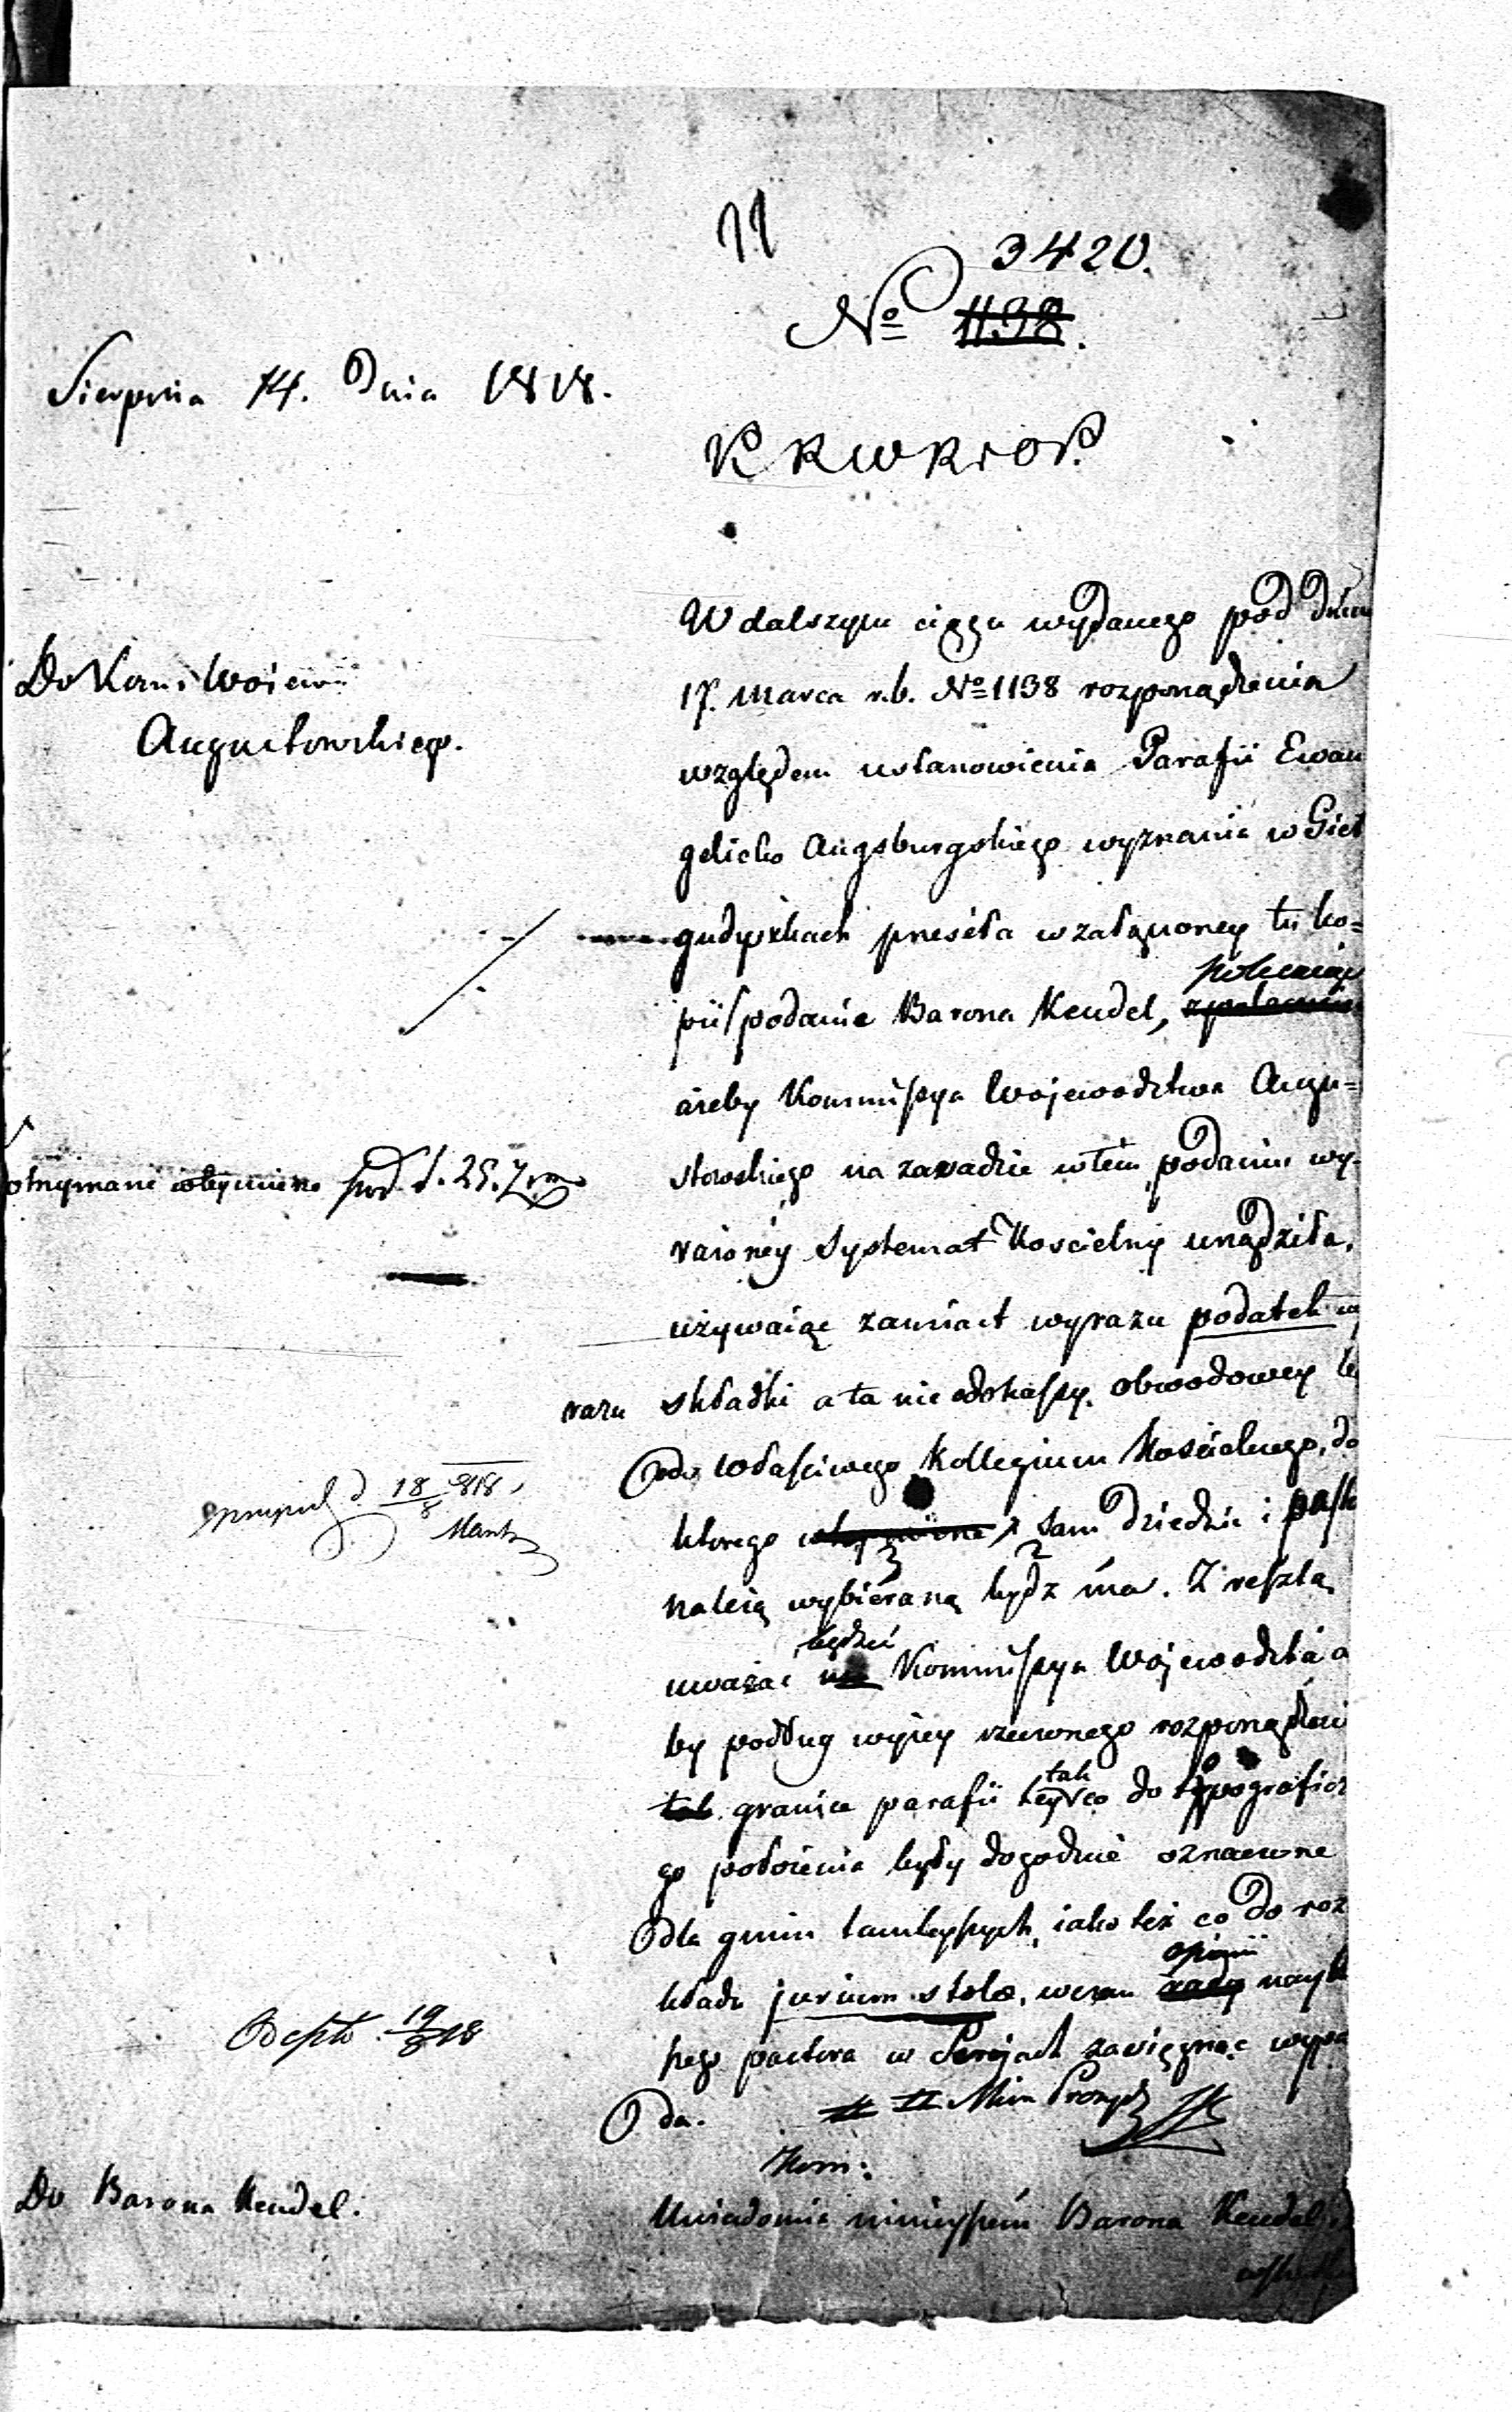 11
3420.
No 1138.
Sierpnia 14. Dnia 1818.
K R W R i O P.
Do Kom: Woiew:
Augustowskiego.
W dalszym ciągu wydanego pod dniem
17. Marca r.b. No 1138 rozporządzenia
względem ustanowienia Parafii Ewan
gelicko Augsburgskiego wyznania w Giel
gudyszkach przeséła w załączoney tu ko=
pii podanie Barona Keudel, polecaiąc
ażeby Kommissya Województwa Augu=
stowskiego na zasadzie w tém podaniu wy-
rażonéy Systemat Kościelny urządziła,
używaiąc zamiast wyrazu podatek wy
razu składki a ta nie do kassy obwodowey le
do właściwego Kollegium Kościelnego, do
którego sam dziedzic i past
należą wybieraną bydź ma. Z resztą
uważać będzie Kommissya Wojewódzka a
by podług wyżey rzeczonego rozporządzeni
granice parafii tak co do topografic
go położenia były dogodnie oznaczone
dla gmin tamteyszych, iako też co do roz
kładu jurium stolæ, wezwie opinii nayb
szego pastora w Serejach zasięgnąć wypa
da.
Min Prezyd
otrzymane pod d. 25. 7
d. 18/8 818.
Odeszło 19/8 18
Kom:
Do Barona Keudel.
Uwiadomia ninieyszém Barona Keudel